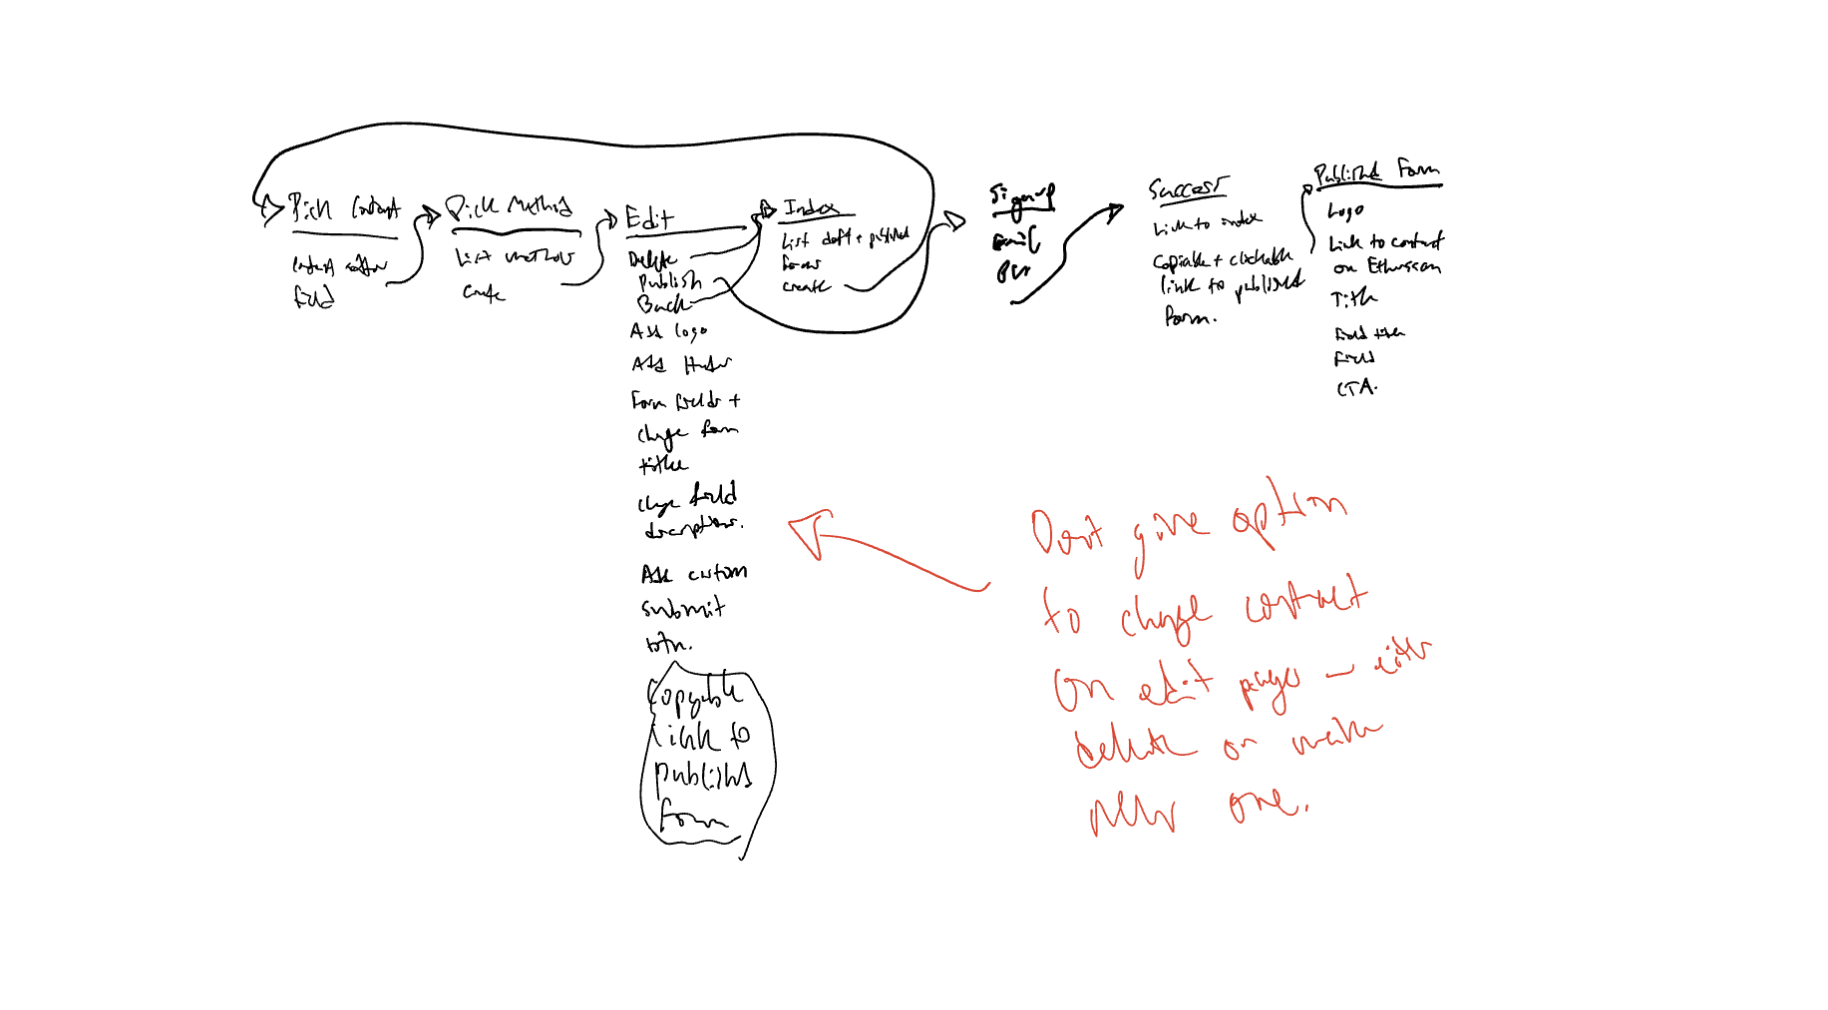 Pick Contract
Contract
field
Pick Method
List methods
Create
Edit
Delete
Publish
Back
Add logo
Add Header
Form fields +
change form
title
change field
descriptions.
Add custom
submit
btn.
Copyable
link to
published
form
Index
List draft + published
forms
create
Signup
Email
Success
Link to index
Copiable + clickable
link to published
Form.
Published Form
Logo
Link to contract
on Etherscan
Title
Field title
Field
CTA.
Dont give option
to change contract
on edit page - either
delete or make
new one.